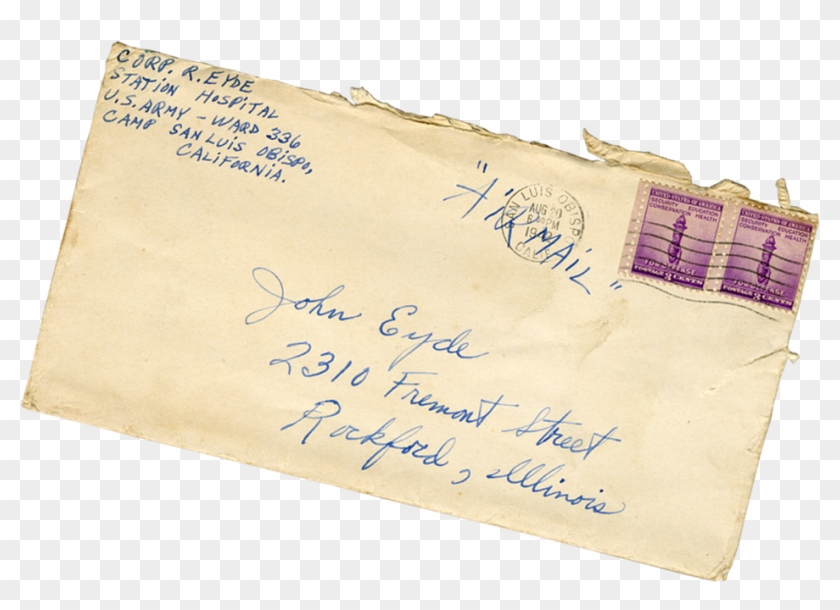 CORP. R. EYDE
STATION HOSPITAL
U.S. ARMY - WARD 336
CAMP SAN LUIS OBISPO,
CALIFORNIA.
"AIR MAIL"
SAN LUIS OBISPO
AUG 20
PM
CALIF.
UNITED STATES OF AMERICA
SECURITY EDUCATION
CONSERVATION HEALTH
FOR DEFENSE
POSTAGE 3 CENTS
UNITED STATES OF AMERICA
SECURITY EDUCATION
CONSERVATION HEALTH
FOR DEFENSE
POSTAGE 3 CENTS
John Eyde
2310 Fremont Street
Rockford, Illinois